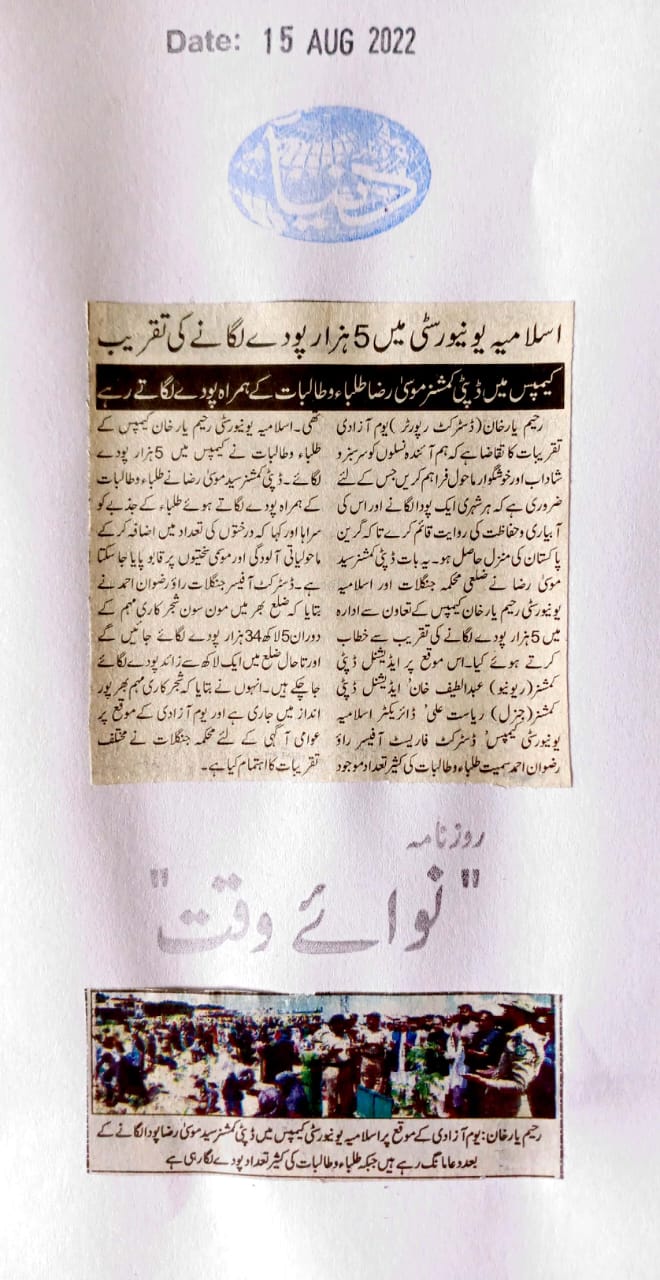 Date: 15 AUG 2022
دنیا
اسلامیہ یونیورسٹی میں 5 ہزار پودے لگانے کی تقریب
کیمپس میں ڈپٹی کمشنر موسیٰ رضا طلباء و طالبات کے ہمراہ پودے لگاتے رہے
رحیم یار خان (ڈسٹرکٹ رپورٹر) یوم آزادی
تقریبات کا تقاضا ہے کہ ہم آئندہ نسلوں کو سرسبز و
شاداب اور خوشگوار ماحول فراہم کریں جس کے لئے
ضروری ہے کہ ہر شہری ایک پودا لگانے اور اس کی
آبیاری و حفاظت کی روایت قائم کرے تاکہ گرین
پاکستان کی منزل حاصل ہو۔ یہ بات ڈپٹی کمشنر سید
موسیٰ رضا نے ضلعی محکمہ جنگلات اور اسلامیہ
یونیورسٹی رحیم یار خان کیمپس کے تعاون سے ادارہ
میں 5 ہزار پودے لگانے کی تقریب سے خطاب
کرتے ہوئے کیا۔ اس موقع پر ایڈیشنل ڈپٹی
کمشنر (ریونیو) عبدالطیف خان' ایڈیشنل ڈپٹی
کمشنر (جنرل) ریاست علی' ڈائریکٹر اسلامیہ
یونیورسٹی کیمپس' ڈسٹرکٹ فاریسٹ آفیسر راؤ
رضوان احمد سمیت طلباء و طالبات کی کثیر تعداد موجود
تھی۔ اسلامیہ یونیورسٹی رحیم یار خان کیمپس کے
طلباء و طالبات نے کیمپس میں 5 ہزار پودے
لگائے۔ ڈپٹی کمشنر سید موسیٰ رضا نے طلباء و طالبات
کے ہمراہ پودے لگاتے ہوئے طلباء کے جذبے کو
سراہا اور کہا کہ درختوں کی تعداد میں اضافہ کر کے
ماحولیاتی آلودگی اور موسمی سختیوں پر قابو پایا جا سکتا
ہے۔ ڈسٹرکٹ آفیسر جنگلات راؤ رضوان احمد نے
بتایا کہ ضلع بھر میں مون سون شجر کاری مہم کے
دوران 5 لاکھ 34 ہزار پودے لگائے جائیں گے
اور تاحال ضلع میں ایک لاکھ سے زائد پودے لگائے
جا چکے ہیں۔ انہوں نے بتایا کہ شجر کاری مہم بھرپور
انداز میں جاری ہے اور یوم آزادی کے موقع پر
عوامی آگہی کے لئے محکمہ جنگلات نے مختلف
تقریبات کا اہتمام کیا ہے۔
روزنامہ
"نوائے وقت"
رحیم یار خان: یوم آزادی کے موقع پر اسلامیہ یونیورسٹی کیمپس میں ڈپٹی کمشنر سید موسیٰ رضا پودا لگانے کے
بعد دعا مانگ رہے ہیں جبکہ طلباء و طالبات کی کثیر تعداد پودے لگا رہی ہے